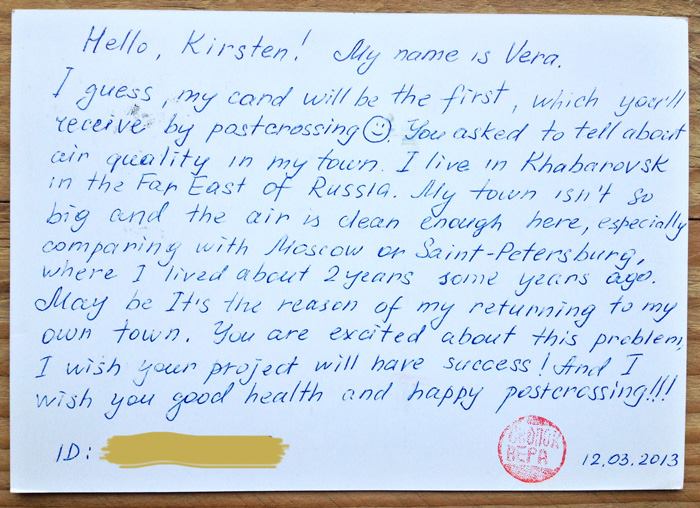 Hello, Kirsten! My name is Vera.
I guess, my card will be the first, which you'll
receive by postcrossing☺. You asked to tell about
air quality in my town. I live in Khabarovsk
in the Far East of Russia. My town isn't so
big and the air is clean enough here, especially
comparing with Moscow or Saint-Petersburg,
where I lived about 2 years some years ago.
May be It's the reason of my returning to my
own town. You are excited about this problem,
I wish your project will have success! And I
wish you good health and happy postcrossing!!!
ID:
ВЕРА
12.03.2013